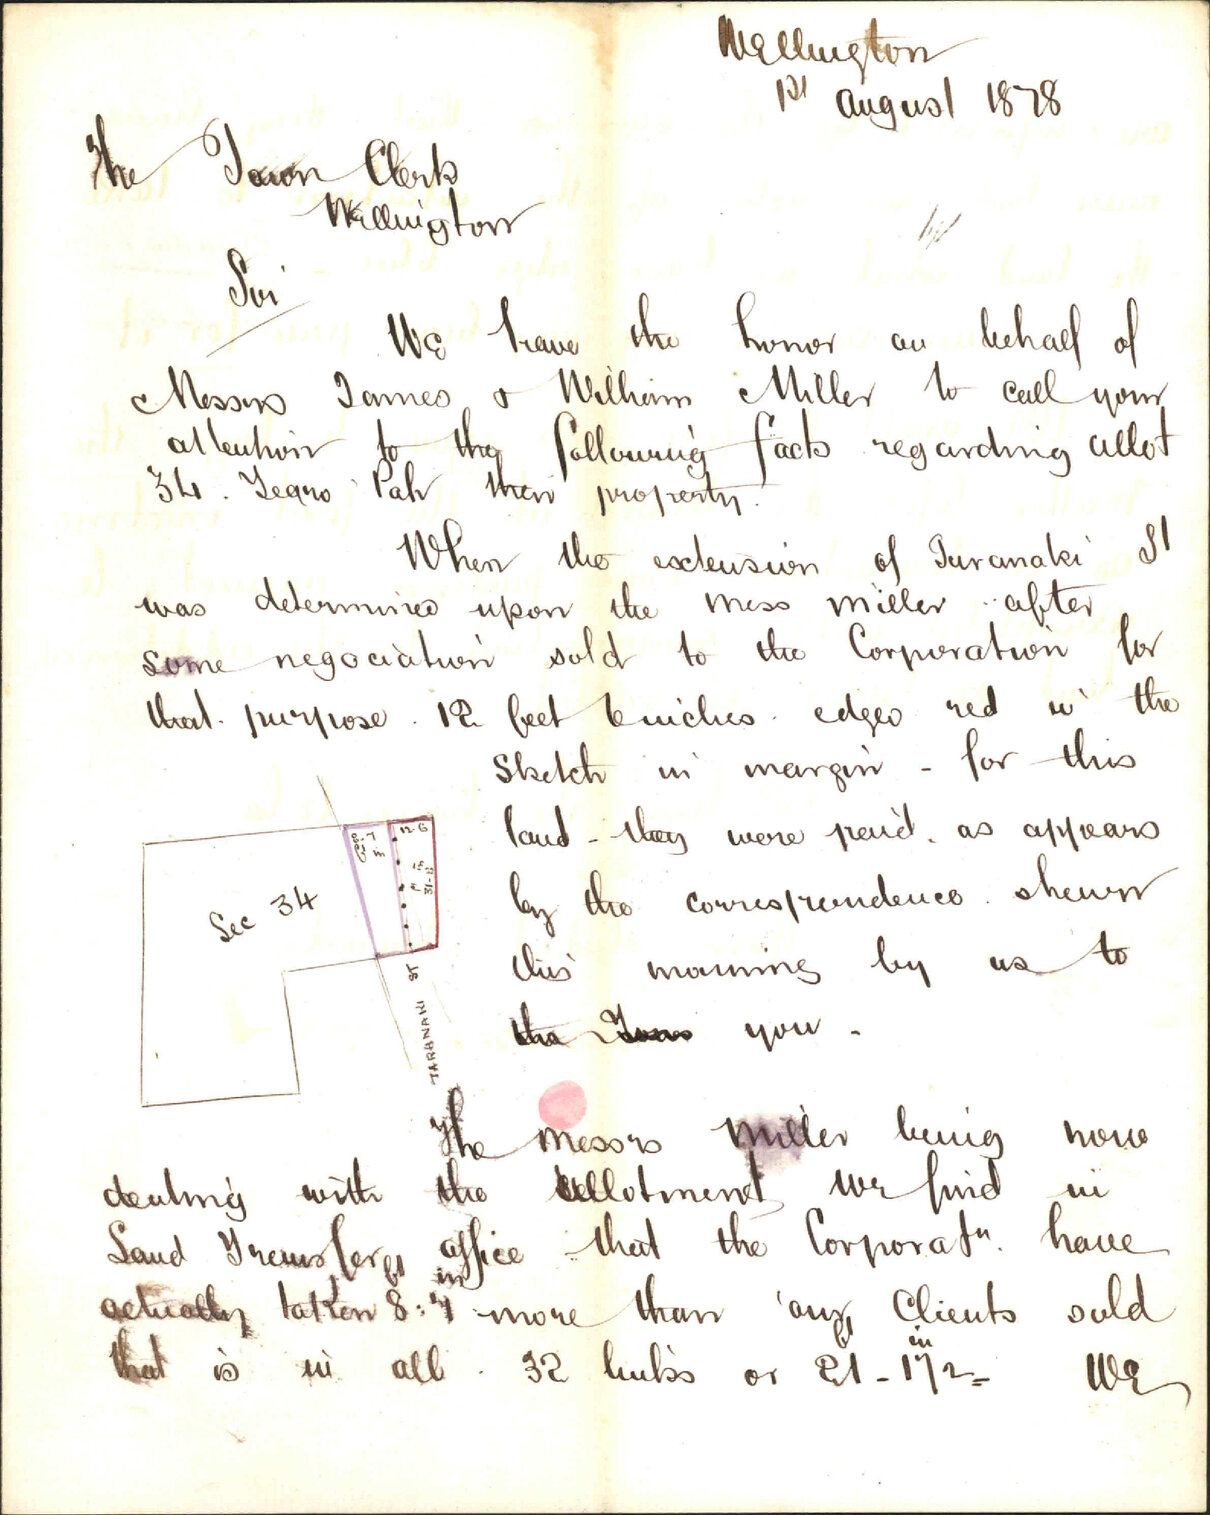 Wellington
1st August 1878
The Town Clerk
Wellington
Sir
We have the honor on behalf of
Messrs James & William Miller to call your
attention to the following facts regarding allot
34. Tearo Pah their property.
When the extension of Taranaki St
was determined upon the Mess Miller after
some negociation sold to the Corporation for
that purpose. 12 feet 6 inches. edged red in the
sketch in margin - for this
land - they were paid. as appears
by the correspondence. shewn
this morning by us to
the Town you -
Sec 34
8
7
12 6
TARANAKI ST
The Messrs Miller being now
dealing with the allotment we find in
Land Transfer office that the Corporatn. have
actually taken 8:7 in more than our Clients sold
that is in all. 32 links or 21 - 1 1/2 in = We